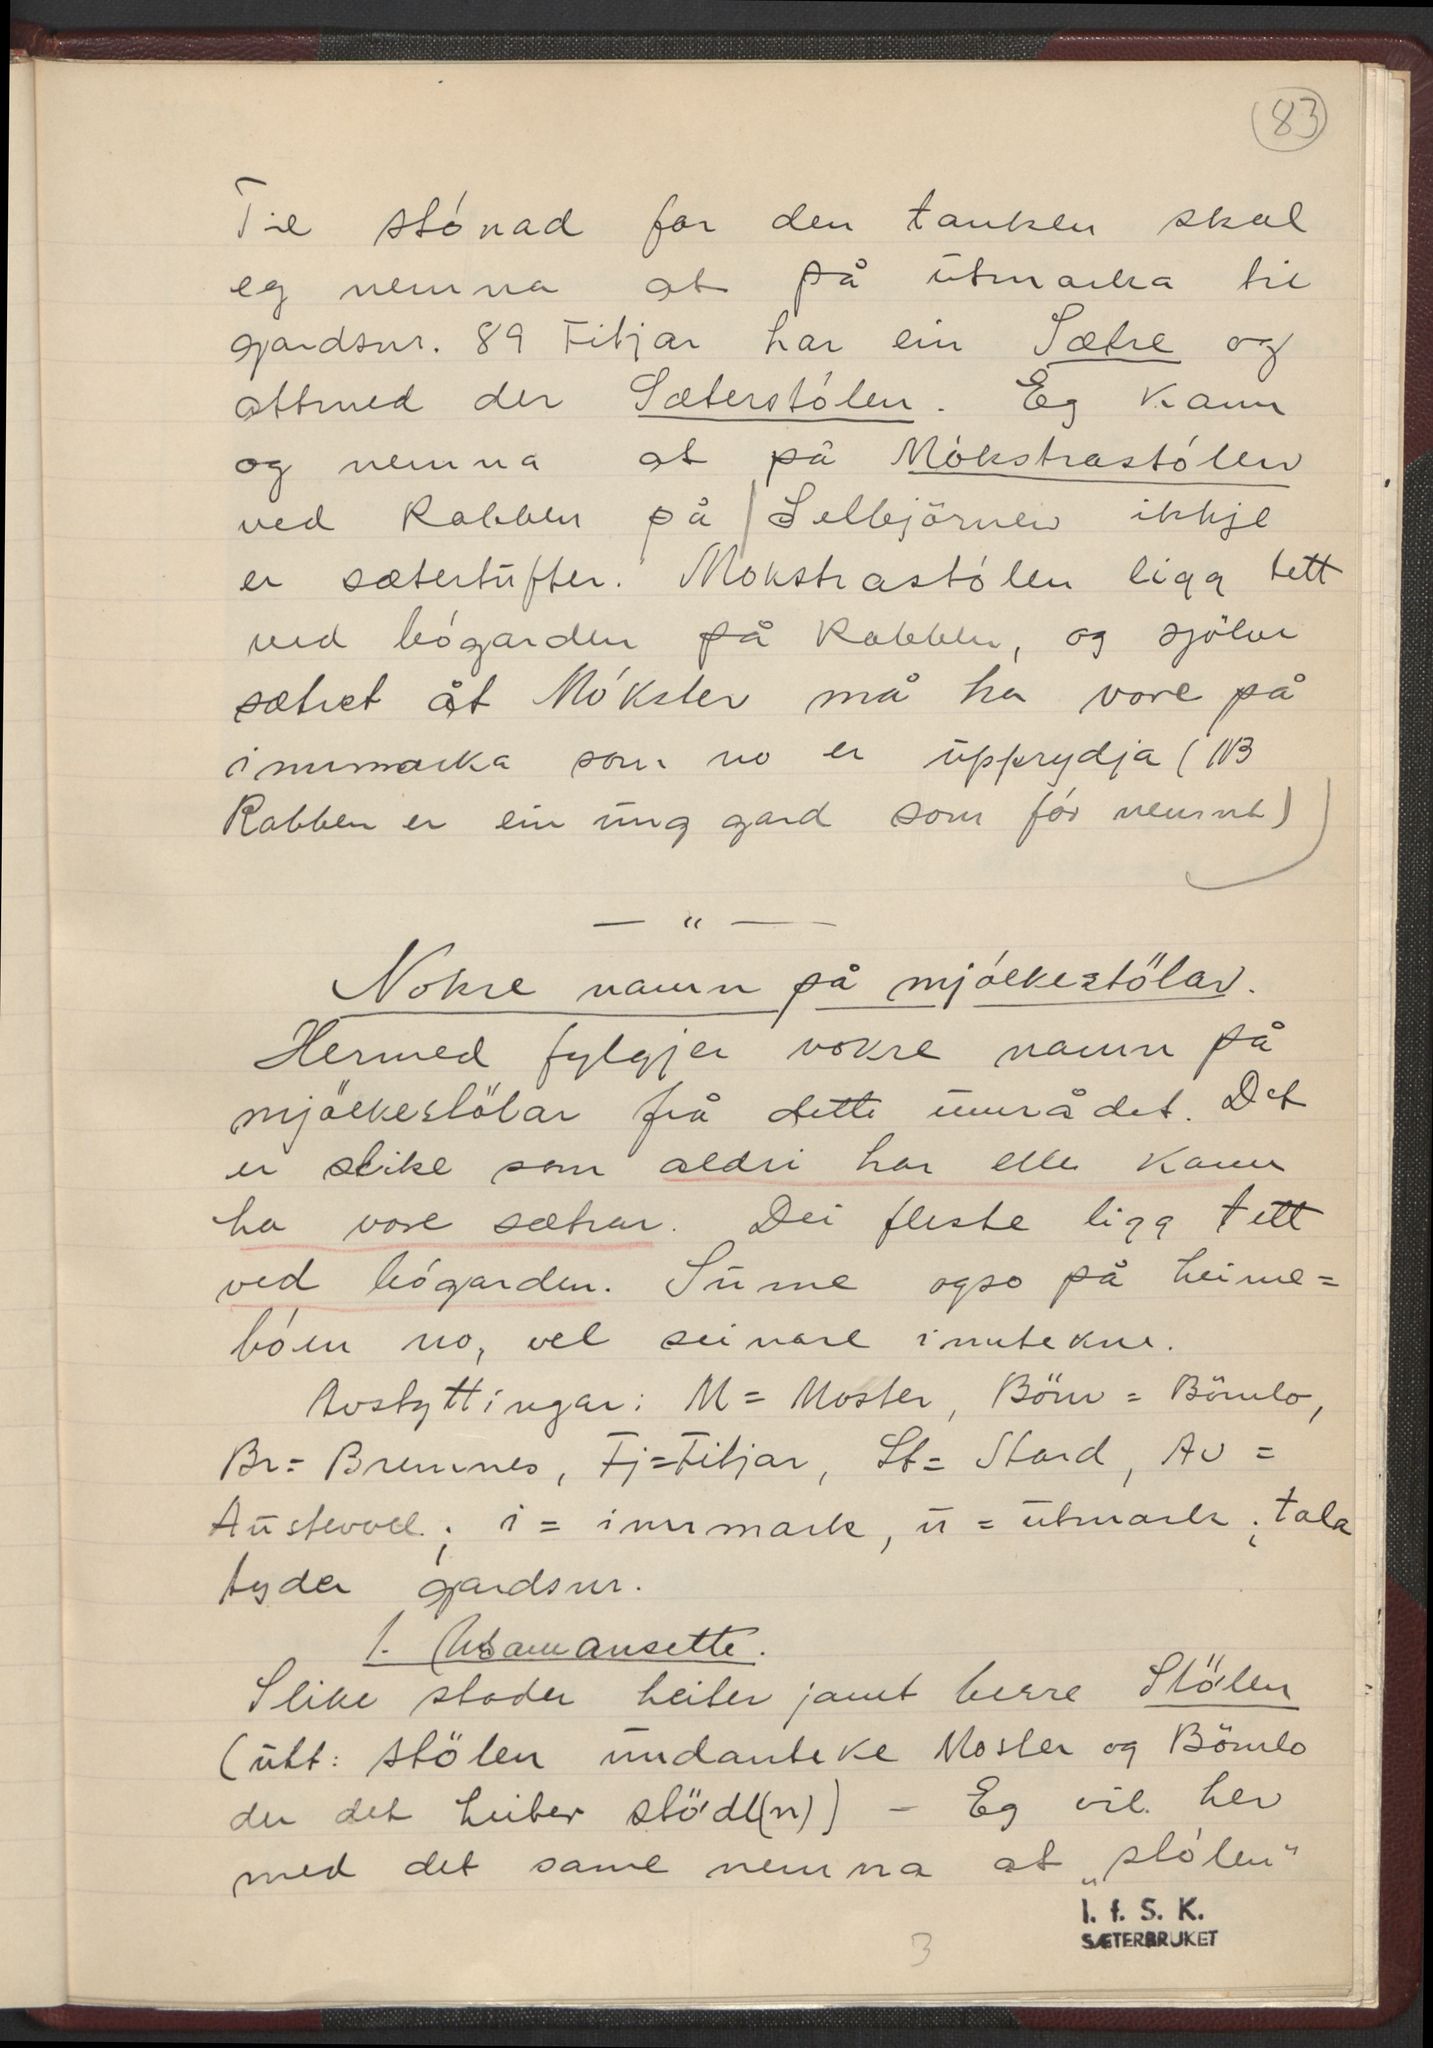 83
Til stónad for den tanken skal
eg nemna at på utmarka til
gardsnr. 89 Fitjar har ein Sætre og
attmed der Sæterstólen. Eg kann
og nemna at på Mókstrastólen
ved Rabben på Selbjörnen ikkje
er sætertufter. Mokstrastólen ligg tett
ved bógarden på Rabben, og sjölve
sætret åt Mókster må ha vore på
innmarka som no er upprydja (NB
Rabben er ein ung gard som fór nemnt)
— " —
Nokre namn på mjólkestölar.
Hermed fylgjer nokre namn på
mjölkestölar frå dette umrådet. Det
er slike som aldri har elle kann
ha vore sætrar. Dei fleste ligg tett
ved bógarden. Sume ogso på heime=
bóen no, vel seinare inntekne.
Avstyttingar: M = Moster, Böm = Bömlo,
Br = Bremnes, Fj = Fitjar, St = Stord, Av =
Austevoll; i = innmark, u = utmark; tala
tyder gardsnr.
1. Usamansette.
Slike stader heiter jamt berre Stölen
(utt: stölen undanteke Moster og Bömlo
der det heiter stödl(n)) – Eg vil her
med det same nemna at „stólen"
I. f. S. K.
SÆTERBRUKET
3